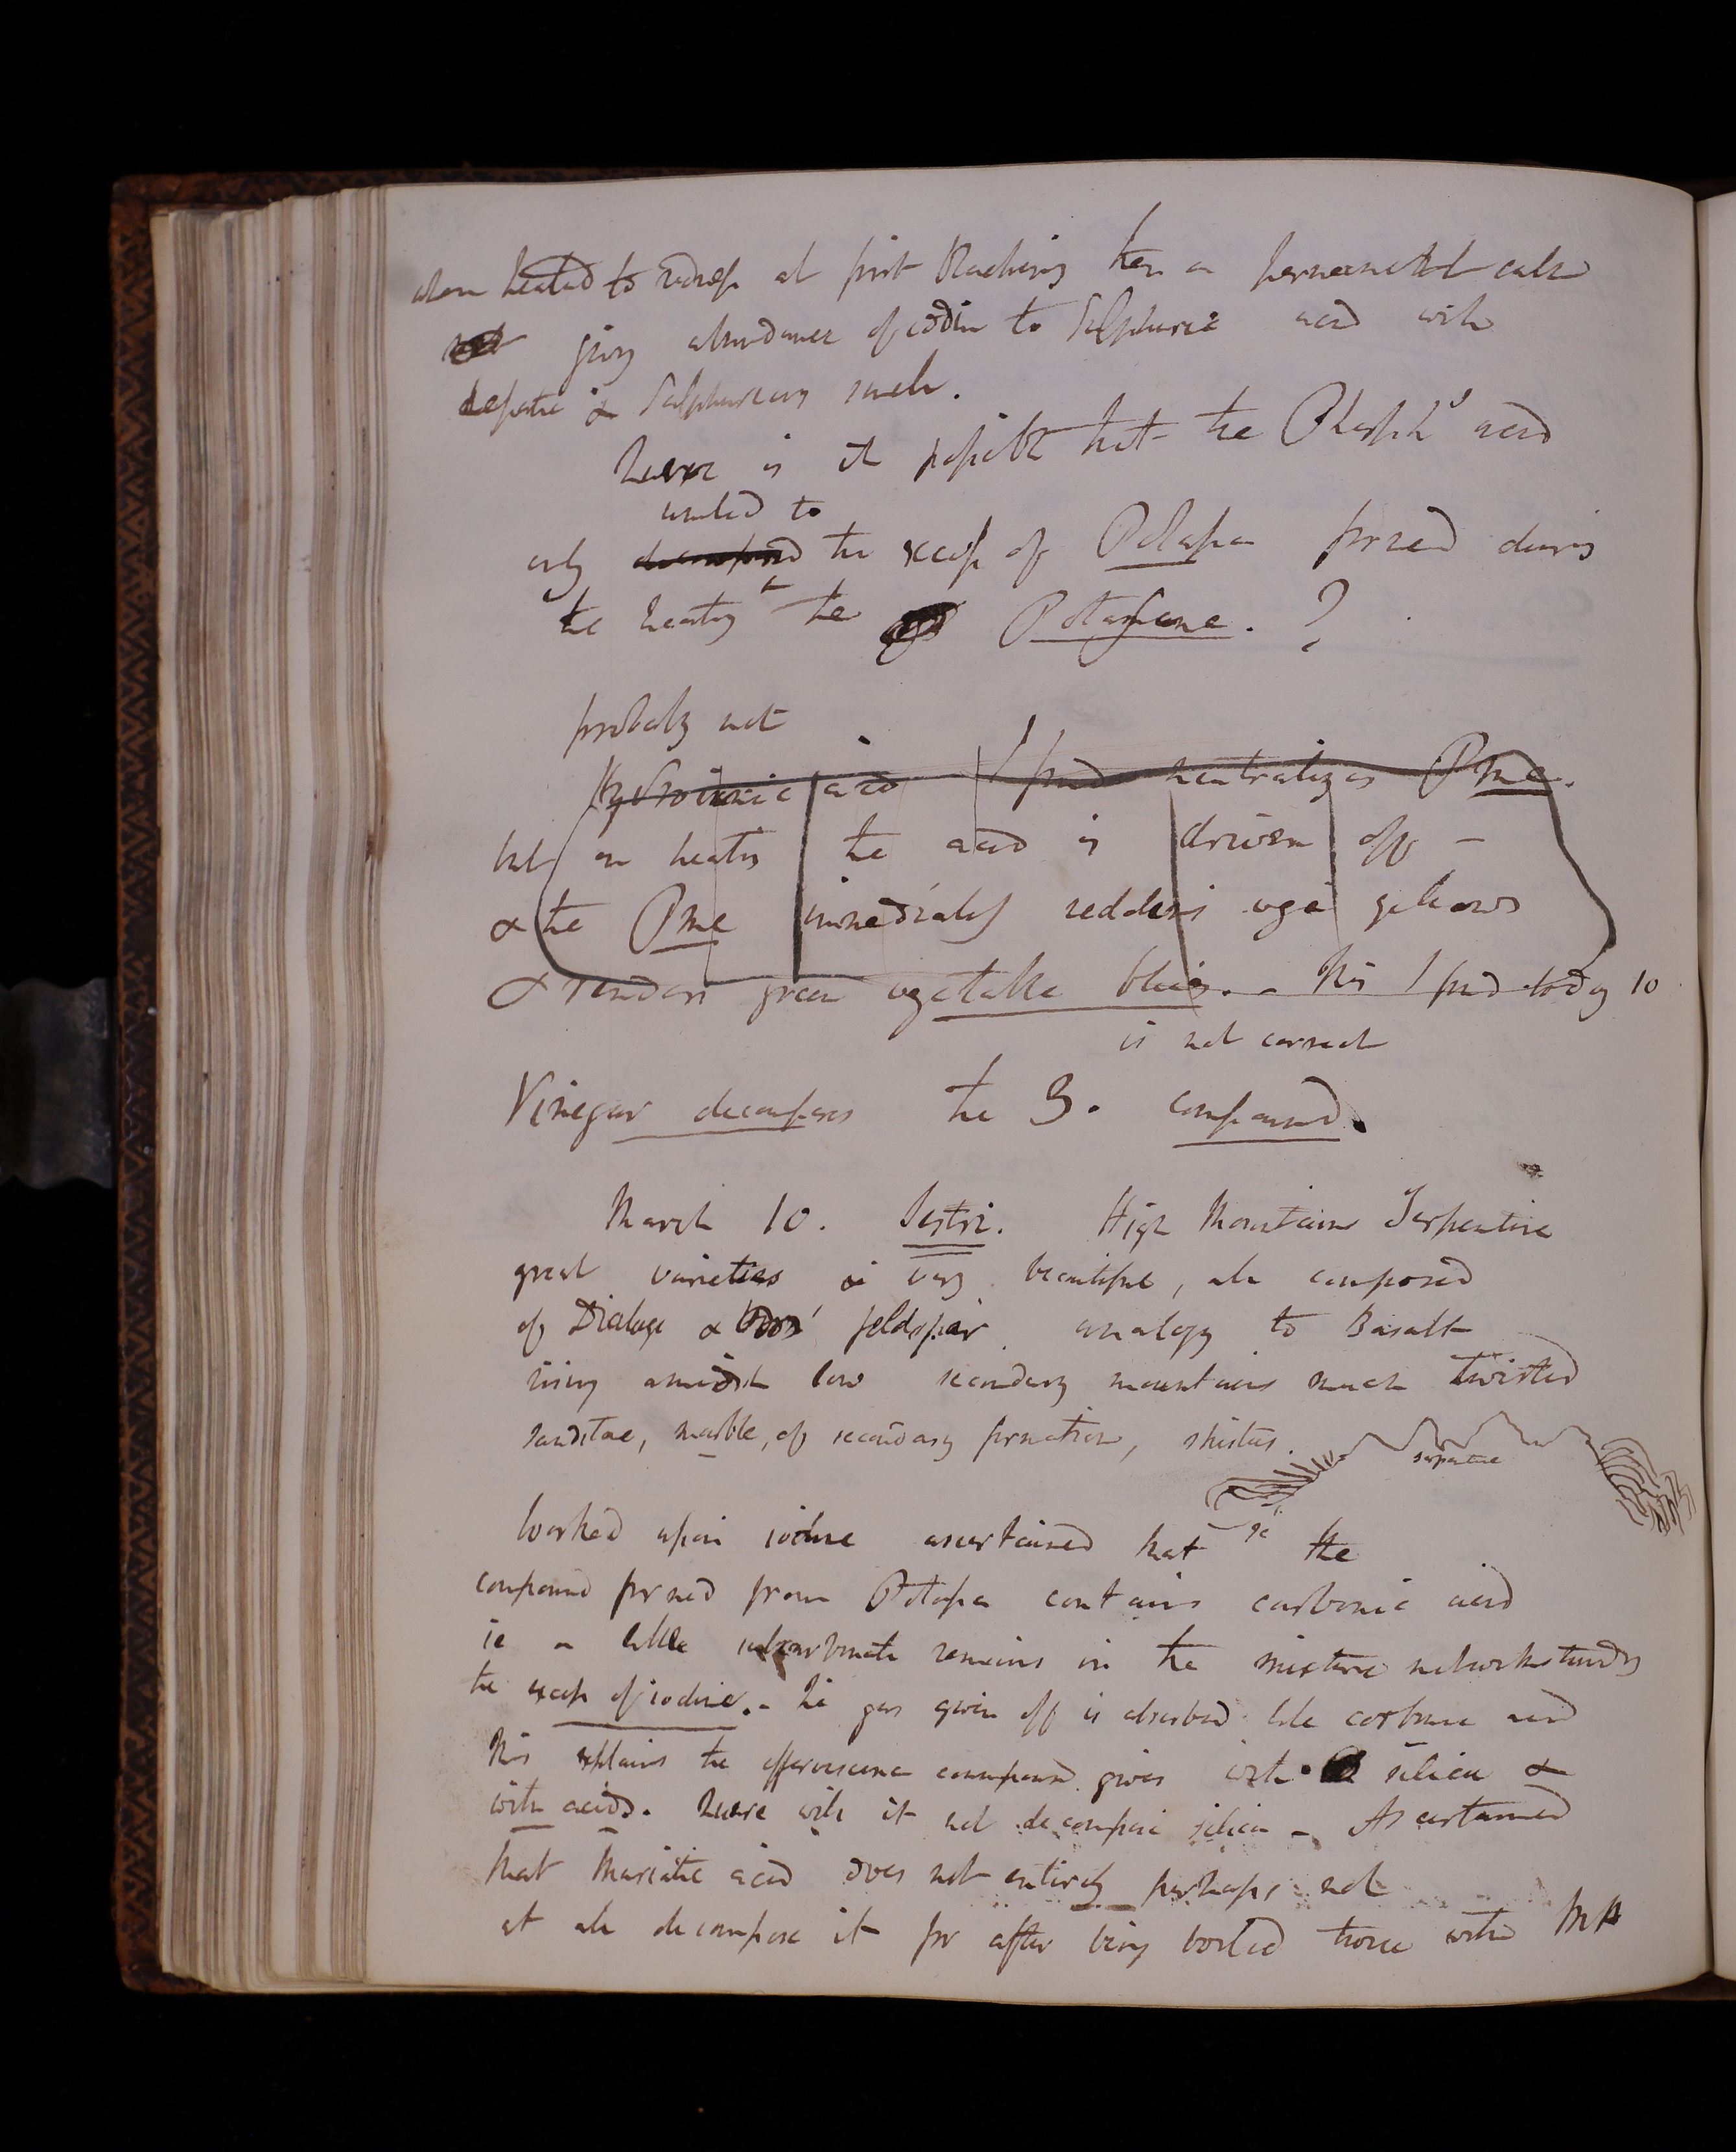 when heated to redness at first blackening then a permanent calx
giving abundance of iodine to Sulphuric acid with
hepatic & Sulphureous smell.
Quere is it possible that the Phosph^c acid
united to
only decomposed the excess of Potassa formed during
the heating the Potassane. ?
probably not
Hydroionic acid I find neutralizes Pme.
but on heating the acid is driven off –
& the Pme immediately reddens vege yellows
& renders green vegetable blues. – This I find today 10
is not correct
Vinegar decomposes the 3. compound.
March 10. Sestri. High Mountains Serpentine
great varieties & very beautiful, all composed
of Dialage & feldspar. analogy to Basalt
rising amidst low secondary mountains much twisted
sandstone, marble, of secondary formation, shistus.
serpentine
Worked upon iodine ascertained that the
compound formed from Potassa contains carbonic acid
ie a little subcarbonate remains in the mixture notwithstanding
the excess of iodine. – The gas given off is absorbed like carbonic acid
This explains the effervescence compound gives with silica &
with acids. Quere will it not decompose silica – Ascertained
that Muriatic acid does not entirely perhaps not
at all decompose it for after being boiled twice with MA